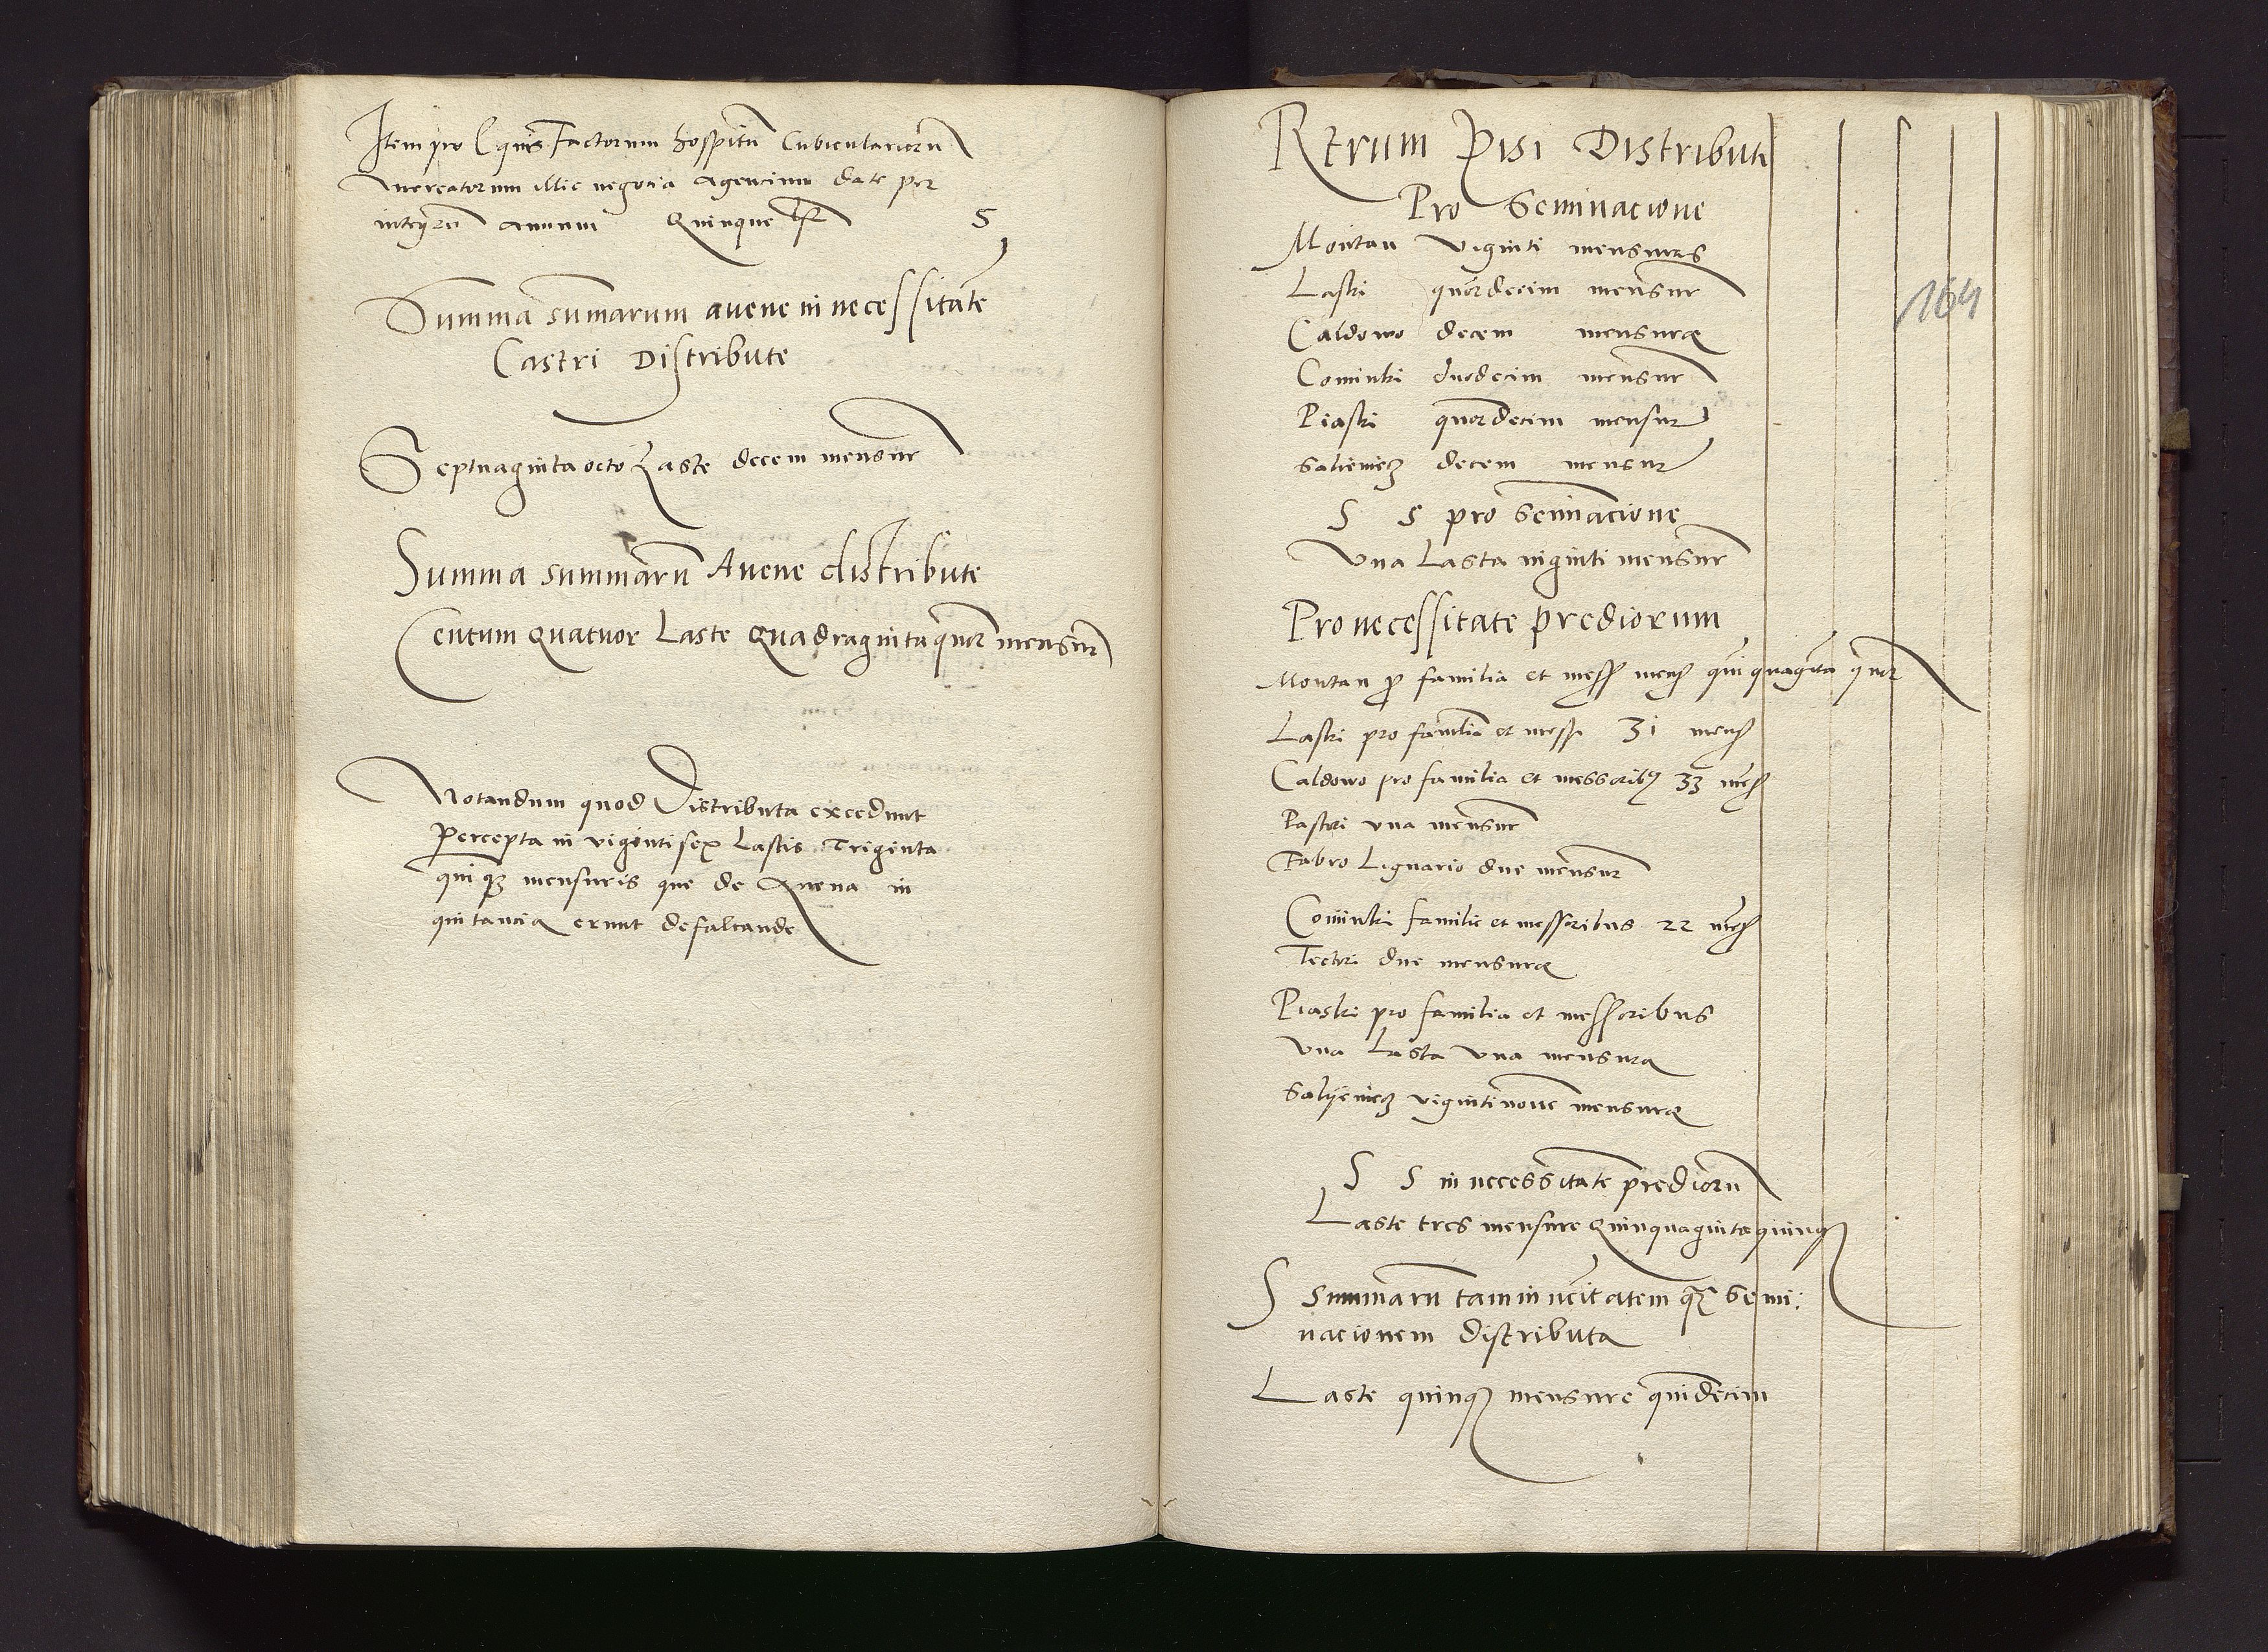 Item pro Equis Factorum hospitu Cubiculariorū
mercatorum illic negocia agencium date per
integrū annum Quinque last 5
Summa summarum avene in necessitate
Castri Distribute
Septuagintaocto Laste decem mensure
Summa summarū Avene distribute
Centum quatuor Laste Quadragintaquor mensure
Notandum quod Distributa excedunt
Percepta in vigintisex Lastis Triginta
quiqz mensuris que de Avena in
quitancia erunt defalcande
Rerum Pisi Distributi
Pro Seminacione
Montau viginti mensuras
Laski quordecim mensure
Caldowo decem mensure
Cominki duodecim mensure
164
Piaski quordecim mensure
Salieniecz decem mensur
S S pro Seminacione
Una Lasta viginti mensure
Pro necessitate prediorum
Montau p familia et mess mens quiquagita quor
Laski pro familia et mess 31 mens
Caldowo pro familia et messoribz 33 mens
Pastori una mensure
Fabro Lignario due mensure
Cominki familie et messoribus 22 mens
Tectori due mensure
Piaski pro familia et messoribus
Una Lasta una mensura
Salijeniecz vigintinove mensure
S S in necessitate prediorū
Laste tres mensure Quinquagintaquinqz
S summarū tam in ncitatem qz Semi:
nacionem distributa
Laste quinqz mensure quidecim